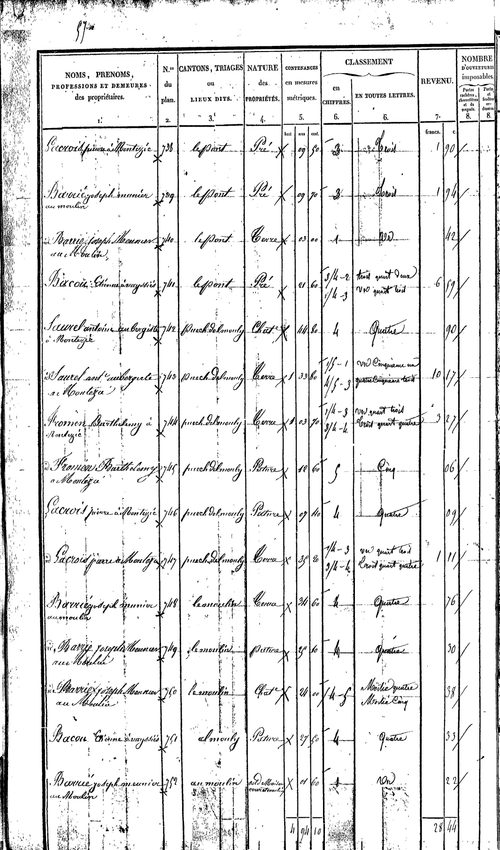 57me
NOMS, PRENOMS, PROFESSIONS ET DEMEURES des propriétaires. 1.
N.os du plan. 2.
CANTONS, TRIAGES ou LIEUX DITS. 3.
NATURE des PROPRIÉTÉS. 4.
CONTENANCES en mesures métriques. 5.
CLASSEMENT
en CHIFFRES. 6.
EN TOUTES LETTRES. 6.
REVENU. 7.
NOMBRE D'OUVERTURES imposables
8. 8.
francs. c
Lacroix pierre à Montezié 738 le pont Pré 09 50 3 Trois 1 90
Barrié joseph munier au moulin 739 le pont Pré 09 70 3 Trois 1 94
Barrié joseph Meunier au Moulin 740 le pont Terre 03 00 1 Un 42
Bacou Etienne 741 le pont Pré 21 60 3/4-2 1/4-3 trois quart deux un quart trois 6 59
Saurel antoine aubergiste à Montezié 742 puech delmouly 44 80 4 Quatre 90
Saurel ant. aubergiste a Montezié 743 puech delmouly Terre 1 33 80 1/5-1 4/5-3 un Cinquieme un quatre Cinquieme trois 10 17
Fromen Barthelemy à Montezié 744 puech delmouly Terre 1 03 70 1/4-3 3/4-4 un quart trois trois quart quatre 3 27
Fromen Barthelemy a Montezié 745 puech delmouly Pature 12 60 5 Cinq 06
Lacroix pierre à Montezié 746 puech delmouly Pature 07 4 Quatre 09
Lacroix pierre a Montezié 747 puech delmouly Terre 35 1/4-3 3/4-4 un quart trois trois quart quatre 1 11
Barrié joseph munier au moulin 748 le moulin Terre 24 60 4 Quatre 76
Barrié joseph Meunier au Moulin 749 le moulin pature 25 4 Quatre 30
Barrié joseph Meunier au Moulin 750 le moulin 24 00 1/4-5 Moitié quatre Moitié Cinq 38
Bacou Etienne 751 almouly Pature 27 50 4 Quatre 33
Barrié joseph meunier au Moulin 752 au moulin 01 60 1 un 22
4 94 10 28 44